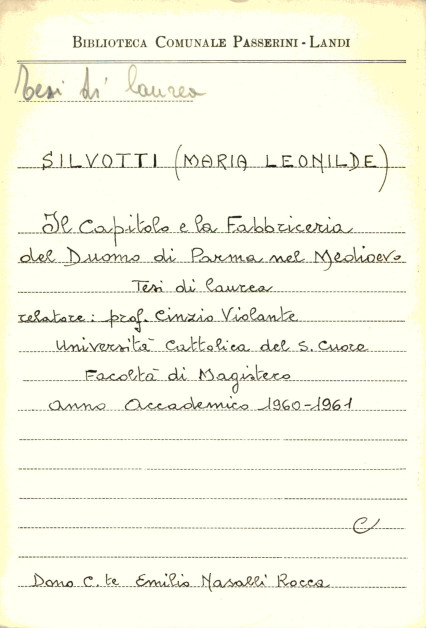 BIBLIOTECA COMUNALE PASSERINI - LANDI
Tesi di laurea
SILVOTTI (MARIA LEONILDE)
Il Capitolo e la Fabbriceria
del Duomo di Parma nel Medioevo
Tesi di laurea
relatore: prof. Cinzio Violante
Università Cattolica del S. Cuore
Facoltà di Magistero
anno Accademico 1960-1961
C
Dono C.te Emilio Nasalli Rocca